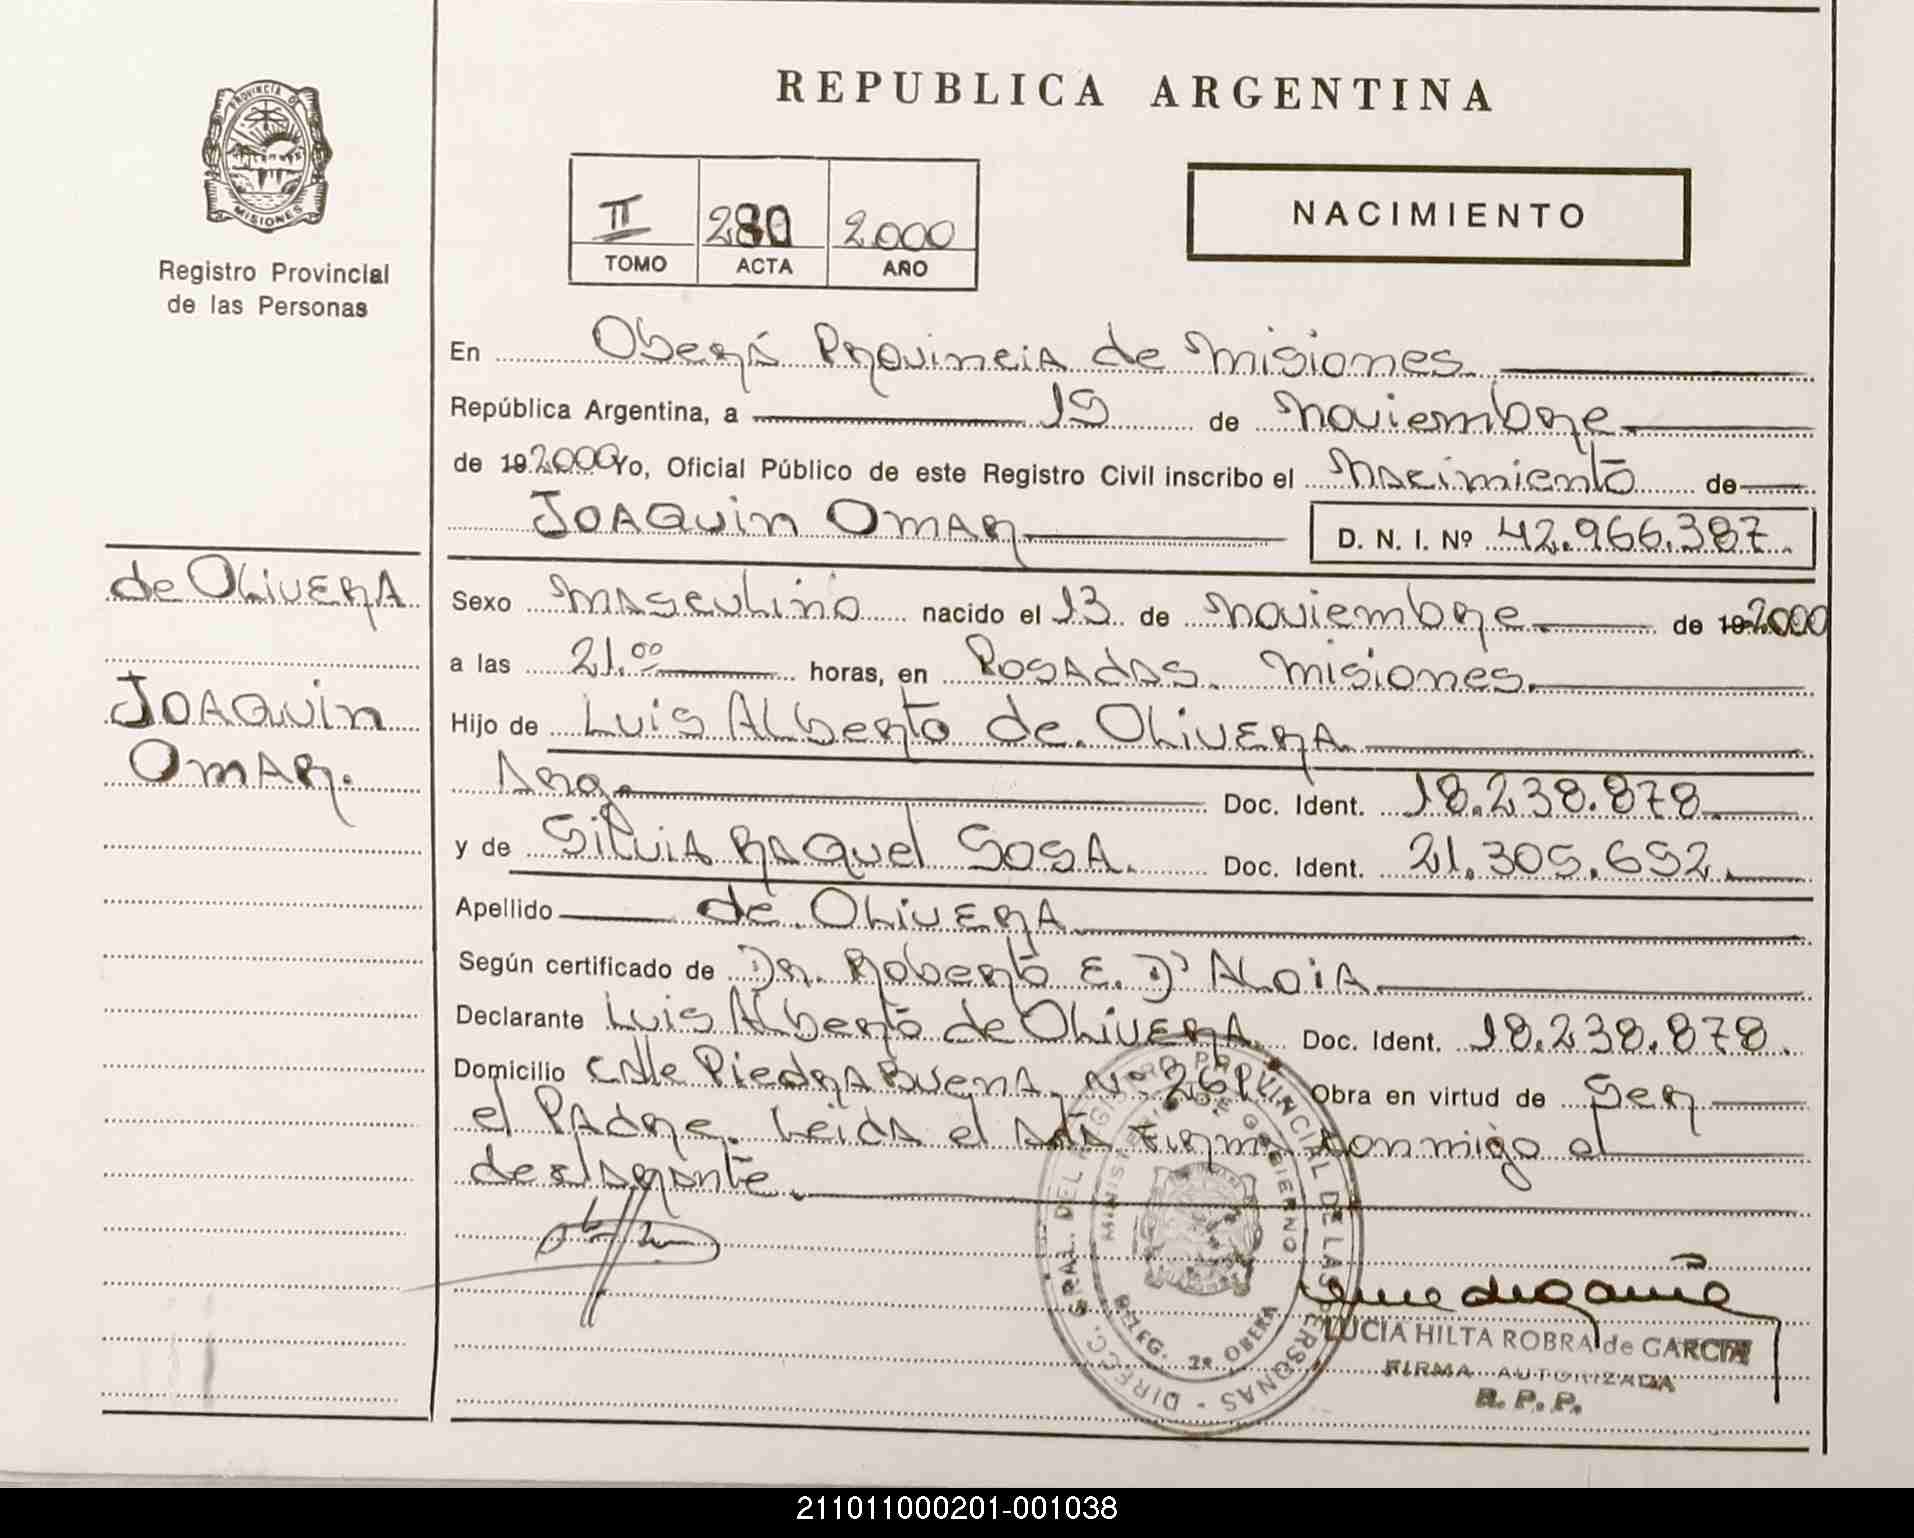 REPUBLICA ARGENTINA
PROVINCIA D
MISIONES
Registro Provincial
de las Personas
II 280 2000
TOMO ACTA AÑO
NACIMIENTO
En Oberá Provincia de Misiones
República Argentina, a 19 de Noviembre
de 19 2000 Yo, Oficial Público de este Registro Civil inscribo el Nacimiento de
JOAQUIN OMAR D. N. I. Nº 42.966.387
de OLIVERA
JOAQUIN
OMAR.
Sexo Masculino nacido el 13 de Noviembre de 19 2000
a las 21.00 horas, en Posadas. Misiones.
Hijo de Luis Alberto de OLIVERA
Arg. Doc. Ident. 18.238.878
y de Silvia Raquel SOSA. Doc. Ident. 21.305.692.
Apellido de OLIVERA
Según certificado de Dr. Roberto E. D'ALOIA
Declarante Luis Alberto de OLIVERA. Doc. Ident. 18.238.878.
Domicilio Calle Piedra Buena. Nº 261 Obra en virtud de Ser
el Padre. Leida el Acta Firma conmigo el
declarante.
DIRECC. GRAL. DEL REGISTRO PROVINCIAL DE LAS PERSONAS
MINISTERIO DE GOBIERNO
DELEG. 2ª OBERA
LUCIA HILTA ROBRA de GARCIA
FIRMA AUTORIZADA
R. P. P.
211011000201-001038